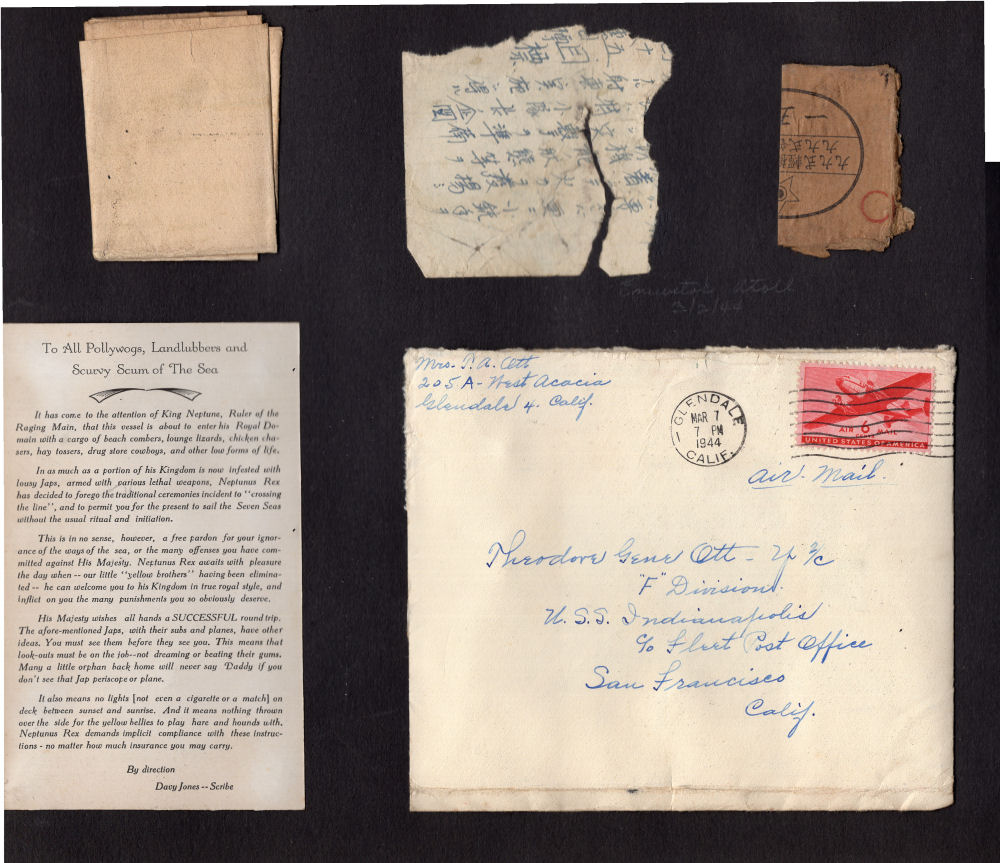 九九式
Eniwetok Atoll
To All Pollywogs, Landlubbers and
Scurvy Scum of The Sea
It has come to the attention of King Neptune, Ruler of the
Raging Main, that this vessel is about to enter his Royal Do-
main with a cargo of beach combers, lounge lizards, chicken cha-
sers, hay tossers, drug store cowboys, and other low forms of life.
In as much as a portion of his Kingdom is now infested with
lousy Japs, armed with various lethal weapons, Neptunus Rex
has decided to forego the traditional ceremonies incident to "crossing
the line", and to permit you for the present to sail the Seven Seas
without the usual ritual and initiation.
This is in no sense, however, a free pardon for your ignor-
ance of the ways of the sea, or the many offenses you have com-
mitted against His Majesty. Neptunus Rex awaits with pleasure
the day when -- our little "yellow brothers" having been elimina-
ted -- he can welcome you to his Kingdom in true royal style, and
inflict on you the many punishments you so obviously deserve.
His Majesty wishes all hands a SUCCESSFUL round trip.
The afore-mentioned Japs, with their subs and planes, have other
ideas. You must see them before they see you. This means that
look-outs must be on the job--not dreaming or beating their gums.
Many a little orphan back home will never say Daddy if you
don't see that Jap periscope or plane.
It also means no lights [not even a cigarette or a match] on
deck between sunset and sunrise. And it means nothing thrown
over the side for the yellow bellies to play hare and hounds with.
Neptunus Rex demands implicit compliance with these instruc-
tions - no matter how much insurance you may carry.
By direction
Davy Jones -- Scribe
Mrs. T. A. Ott
205 A - West Acacia
Glendale 4. Calif.
GLENDALE
MAR 7
7 PM
1944
CALIF.
AIR 6 MAIL
UNITED STATES OF AMERICA
Air Mail.
Theodore Gene Ott - 3/c
"F" Division
U. S. S. Indianapolis
c/o Fleet Post Office
San Francisco
Calif.